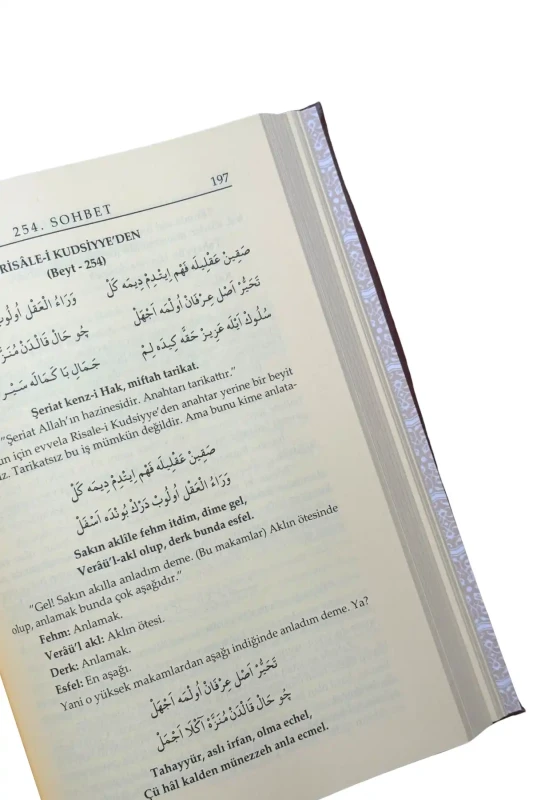 254. SOHBET 197
RİSÂLE-İ KUDSİYYE'DEN
(Beyt - 254)
صَقِينْ عَقْلِيلَه فَهْم اِيتْدِمْ دِيمَه كَلْ وَرَاءُ الْعَقْل
تَحَيُّرْ اَصْل عِرْفَانْ اُولْمَه اَجْهَلْ چُو حَال قَالْدَنْ
سُلُوكْ اَيْلَه عَزِيزْ حَقَّه كِيدَه لِمْ جَمَال بَا كَمَالَه
Şeriat kenz-i Hak, miftah tarikat.
"Şeriat Allah'ın hazinesidir. Anahtarı tarikattır."
için evvela Risale-i Kudsiyye'den anahtar yerine bir beyit
Tarikatsız bu iş mümkün değildir. Ama bunu kime anlata-
صَقِينْ عَقْلِيلَه فَهْم اِيتْدِمْ دِيمَه كَلْ
وَرَاءُ الْعَقْل اُولُوبْ دَرْكْ بُونْدَه اَسْفَلْ
Sakın aklile fehm itdim, dime gel,
Verâü'l-akl olup, derk bunda esfel.
"Gel! Sakın akılla anladım deme. (Bu makamlar) Aklın ötesinde
olup, anlamak bunda çok aşağıdır."
Fehm: Anlamak.
Verâü'l akl: Aklın ötesi.
Derk: Anlamak.
Esfel: En aşağı.
Yani o yüksek makamlardan aşağı indiğinde anladım deme. Ya?
تَحَيُّرْ اَصْل عِرْفَانْ اُولْمَه اَجْهَلْ
چُو حَال قَالْدَنْ مُنَزَّه اَكْلَا اَجْمَلْ
Tahayyür, aslı irfan, olma echel,
Çü hâl kalden münezzeh anla ecmel.